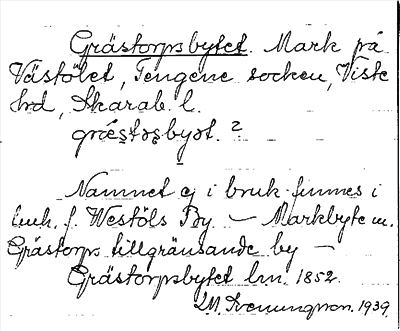 Grästorpsbytet. Mark på
Västölet, Tengene socken, Viste
hrd, Skarab. l.
gräs̱tɔs̱byət. ?
Namnet ej i bruk finnes i
lmh. f. Westöls By. — Markbyte m.
Grästorps tillgränsande by —
Grästorpsbytet lm. 1852.
M. Svenungson. 1939.